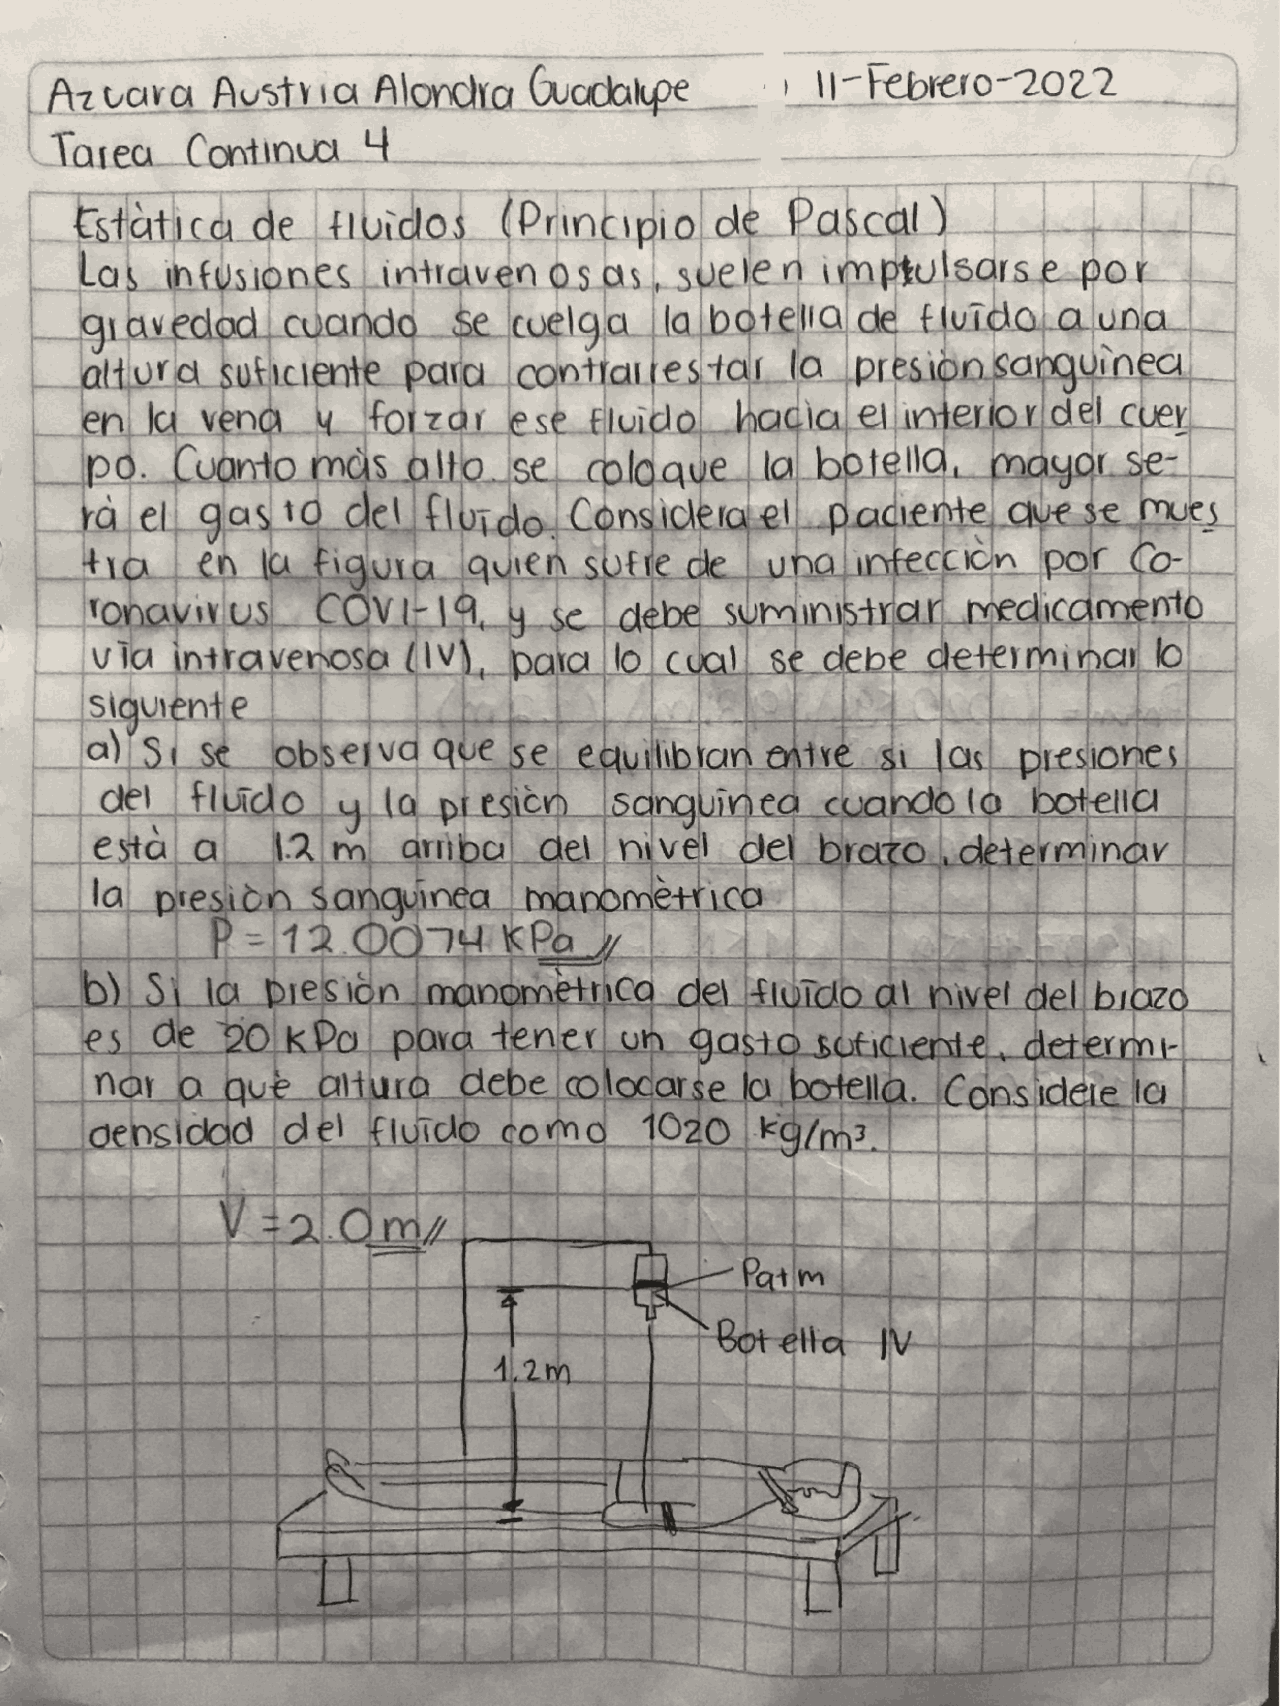 Azcara Austria Alondra Guadalupe 11-Febrero-2022
Tarea Continua 4
Estàtica de fluidos (Principio de Pascal)
Las infusiones intravenosas, suelen imptulsarse por
gravedad cuando se cuelga la botella de fluìdo a una
altura suficiente para contrarrestar la presiòn sanguìnea
en la vena y forzar ese fluido hacia el interior del cuer
po. Cuanto màs alto se coloque la botella, mayor se-
rà el gasto del fluìdo. Considera el paciente que se mues
tra en la figura quien sufre de una infecciòn por Co-
ronavirus COVI-19, y se debe suministrar medicamento
vìa intravenosa (IV), para lo cual se debe determinar lo
siguiente
a) Si se observa que se equilibran entre si las presiones
del fluìdo y la presiòn sanguìnea cuando la botella
està a 1.2 m arriba del nivel del brazo, determinar
la presiòn sanguìnea manomètrica
P = 12.0074 KPa //
b) Si la presiòn manomètrica del fluìdo al nivel del brazo
es de 20 KPa para tener un gasto suficiente, determi-
nar a què altura debe colocarse la botella. Considere la
densidad del fluìdo como 1020 kg/m³.
V = 2.0 m //
Patm
Botella IV
1.2m